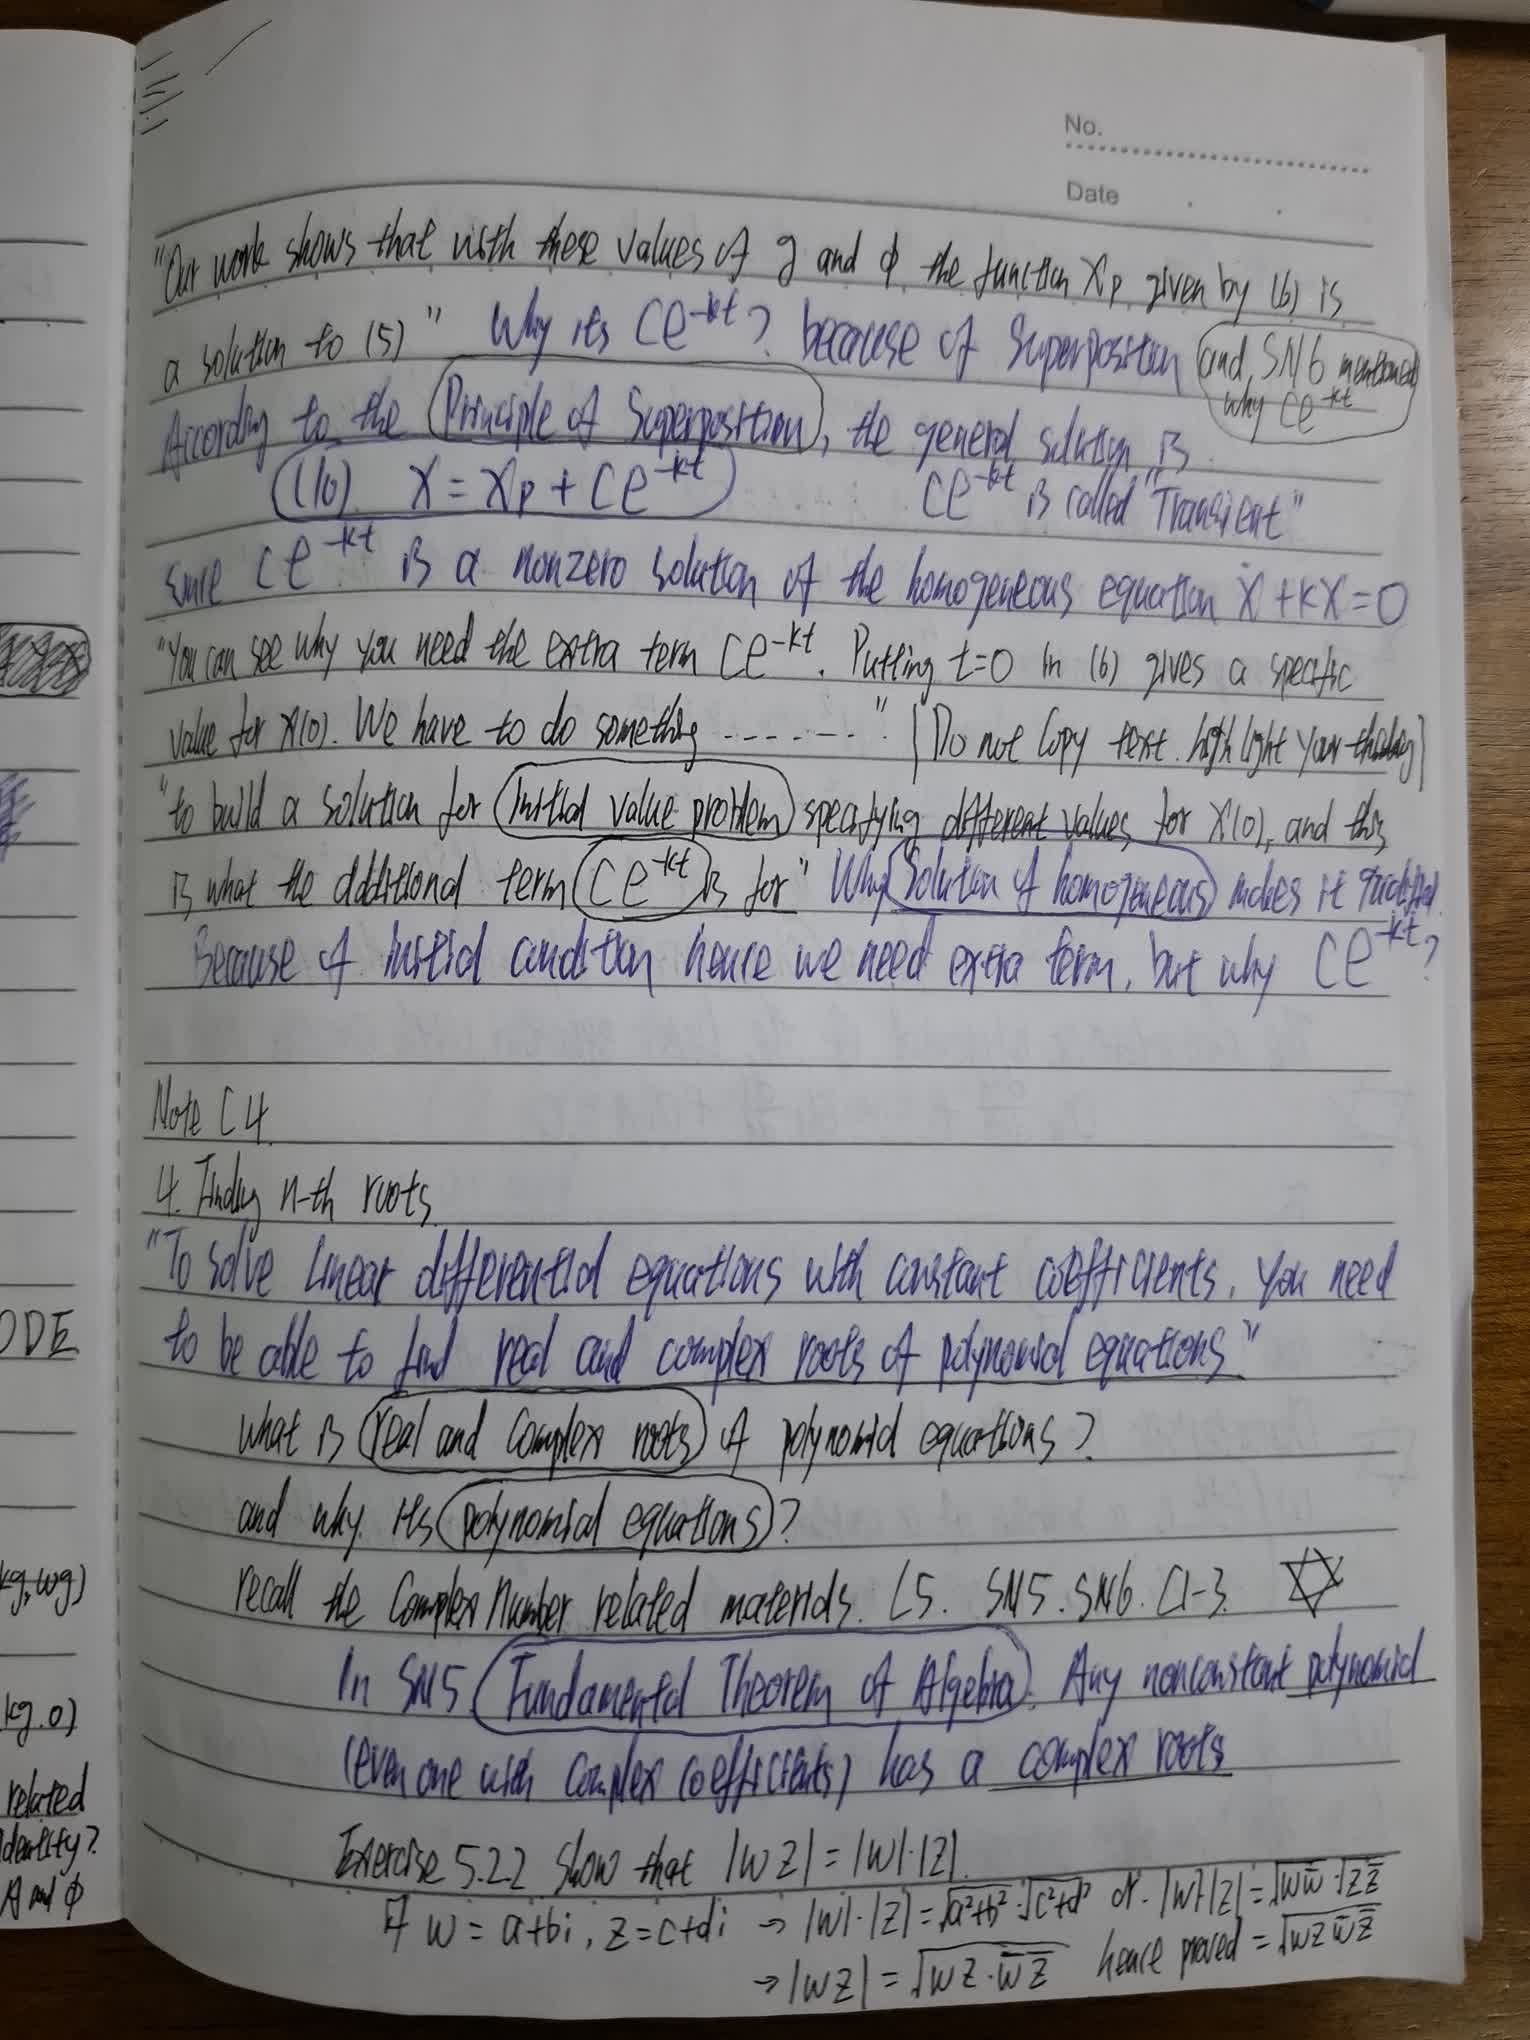 No.
Date
"Our work shows that with these values of g and φ, the function Xp given by (6) is
a solution to (5)" Why its Ce^-kt? because of Superposition
and SN6 mentioned
why Ce^-kt
According to the Principle of Superposition, the general solution is
(10) X = Xp + Ce^-kt Ce^-kt is called "Transient"
Ce^-kt is a nonzero solution of the homogeneous equation Ẋ + kX = 0
"You can see why you need the extra term Ce^-kt. Putting t=0 in (6) gives a specific
value for X(0). We have to do something ........" [Do not Copy text. highlight your thinking]
"to build a solution for initial value problem specifying different values for X(0), and this
is what the additional term Ce^-kt is for" Why Solution of homogeneous makes it
Because of initial condition hence we need extra term, but why Ce^-kt?
Note C4.
4. Finding n-th roots
"To solve linear differential equations with constant coefficients, You need
to be able to find real and complex roots of polynomial equations"
what is real and complex roots of polynomial equations?
and why its polynomial equations?
recall the Complex Number related materials. L5. SN5. SN6. C1-3.
In SN5 Fundamental Theorem of Algebra. Any nonconstant polynomial
(even one with complex coefficients) has a complex roots
Exercise 5.2.2 Show that |wz| = |w|·|z|.
If w = a+bi, z = c+di → |w|·|z| = √a²+b² · √c²+d² or |w|·|z| = √ww̄ · √zz̄
→ |wz| = √wz · w̄ z̄ hence proved = √wz w̄ z̄
ODE
kg, wg)
kg. 0)
related
identity?
A and φ